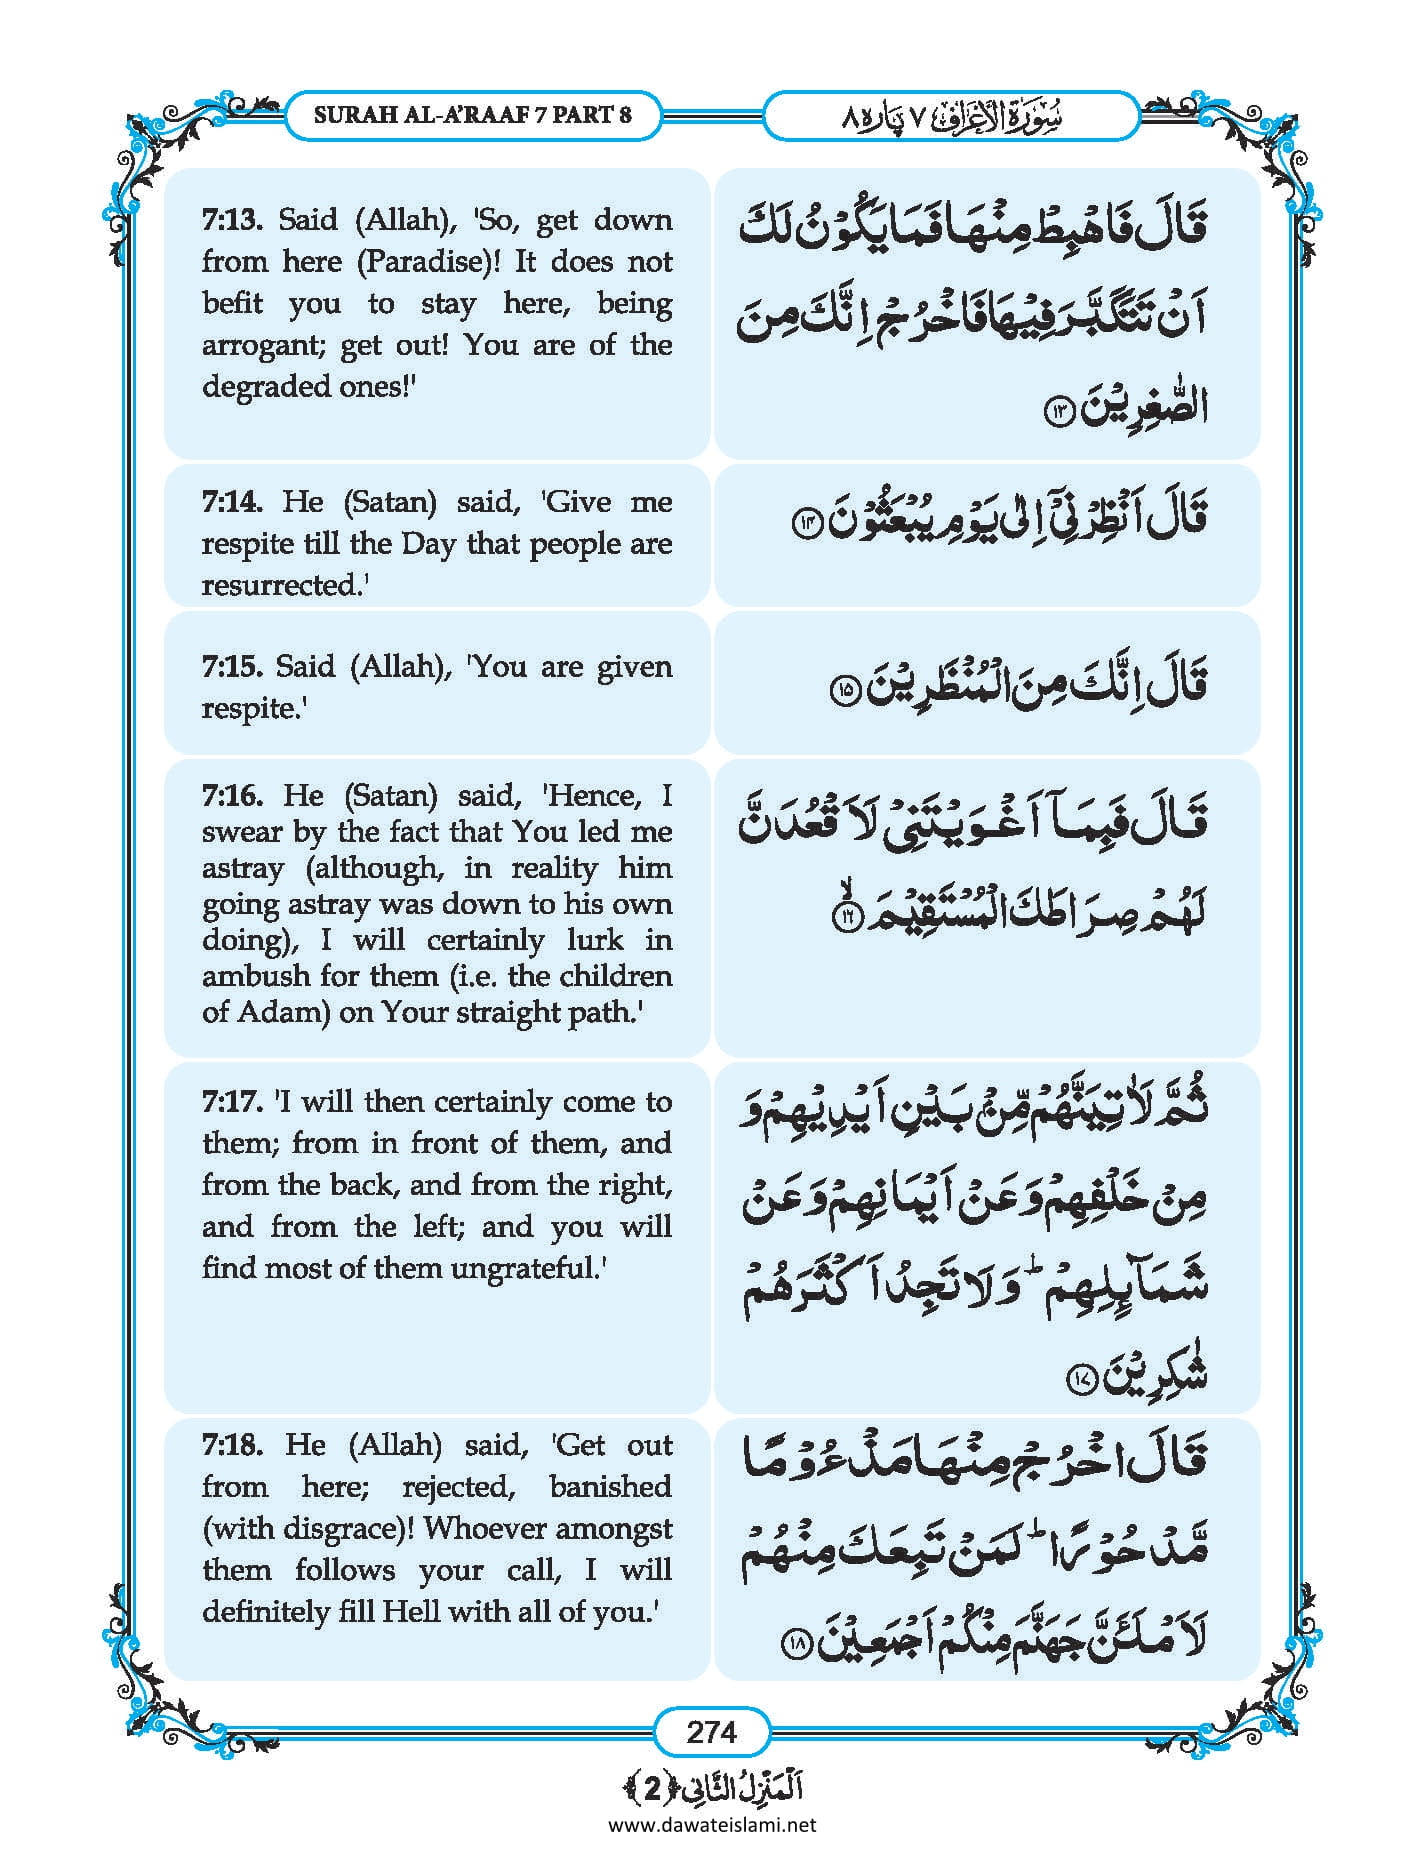 SURAH AL-A’RAAF 7 PART 8
سُوْرَةُ الْاَعْرَاف ٧ پارہ ٨
7:13. Said (Allah), 'So, get down
from here (Paradise)! It does not
befit you to stay here, being
arrogant; get out! You are of the
degraded ones!'
قَالَ فَاهْبِطْ مِنْهَا فَمَا يَكُوْنُ لَكَ
اَنْ تَتَكَبَّرَ فِيْهَا فَاخْرُجْ اِنَّكَ مِنَ
الصّٰغِرِيْنَ ﴿١٣﴾
7:14. He (Satan) said, 'Give me
respite till the Day that people are
resurrected.'
قَالَ اَنْظِرْنِيْۤ اِلٰى يَوْمِ يُبْعَثُوْنَ ﴿١٤﴾
7:15. Said (Allah), 'You are given
respite.'
قَالَ اِنَّكَ مِنَ الْمُنْظَرِيْنَ ﴿١٥﴾
7:16. He (Satan) said, 'Hence, I
swear by the fact that You led me
astray (although, in reality him
going astray was down to his own
doing), I will certainly lurk in
ambush for them (i.e. the children
of Adam) on Your straight path.'
قَالَ فَبِمَاۤ اَغْوَيْتَنِيْ لَاَقْعُدَنَّ
لَهُمْ صِرَاطَكَ الْمُسْتَقِيْمَ ﴿١٦﴾ۙ
7:17. 'I will then certainly come to
them; from in front of them, and
from the back, and from the right,
and from the left; and you will
find most of them ungrateful.'
ثُمَّ لَاٰتِيَنَّهُمْ مِّنْۢ بَيْنِ اَيْدِيْهِمْ وَ
مِنْ خَلْفِهِمْ وَعَنْ اَيْمَانِهِمْ وَعَنْ
شَمَآئِلِهِمْ ؕ وَلَا تَجِدُ اَكْثَرَهُمْ
شٰكِرِيْنَ ﴿١٧﴾
7:18. He (Allah) said, 'Get out
from here; rejected, banished
(with disgrace)! Whoever amongst
them follows your call, I will
definitely fill Hell with all of you.'
قَالَ اخْرُجْ مِنْهَا مَذْءُوْمًا
مَّدْحُوْرًا ؕ لَمَنْ تَبِعَكَ مِنْهُمْ
لَاَمْلَـَٔنَّ جَهَنَّمَ مِنْكُمْ اَجْمَعِيْنَ ﴿١٨﴾
274
اَلْمَنْزِلُ الثَّانِي ﴿2﴾
www.dawateislami.net